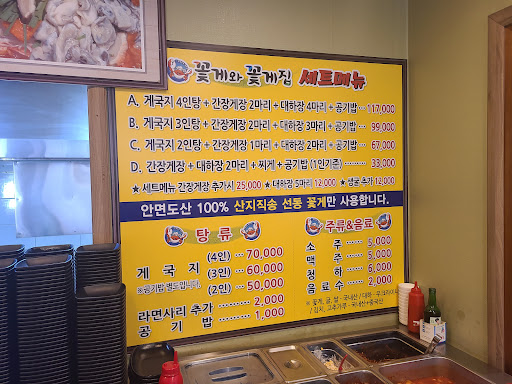 꽃게와 꽃게집 세트메뉴
A. 게국지 4인탕 + 간장게장 2마리 + 대하장 4마리 + 공기밥 ··· 117,000
B. 게국지 3인탕 + 간장게장 2마리 + 대하장 3마리 + 공기밥 ··· 99,000
C. 게국지 2인탕 + 간장게장 1마리 + 대하장 2마리 + 공기밥 ··· 67,000
D. 간장게장 + 대하장 2마리 + 찌게 + 공기밥 (1인기준) ·········· 33,000
★ 세트메뉴 간장게장 추가시 25,000 ★ 대하장 5마리 12,000 ★ 생굴 추가 12,000
안면도산 100% 산지직송 선동 꽃게만 사용합니다.
탕 류
게 국 지
※공기밥 별도입니다.
(4인) ···· 70,000
(3인) ···· 60,000
(2인) ···· 50,000
라면사리 추가 ········ 2,000
공 기 밥 ········ 1,000
주류&음료
소 주 ········ 5,000
맥 주 ········ 5,000
청 하 ········ 6,000
음 료 수 ········ 2,000
※ 꽃게, 굴, 쌀 - 국내산 / 대하 -
/ 김치, 고추가루 - 국내산+중국산